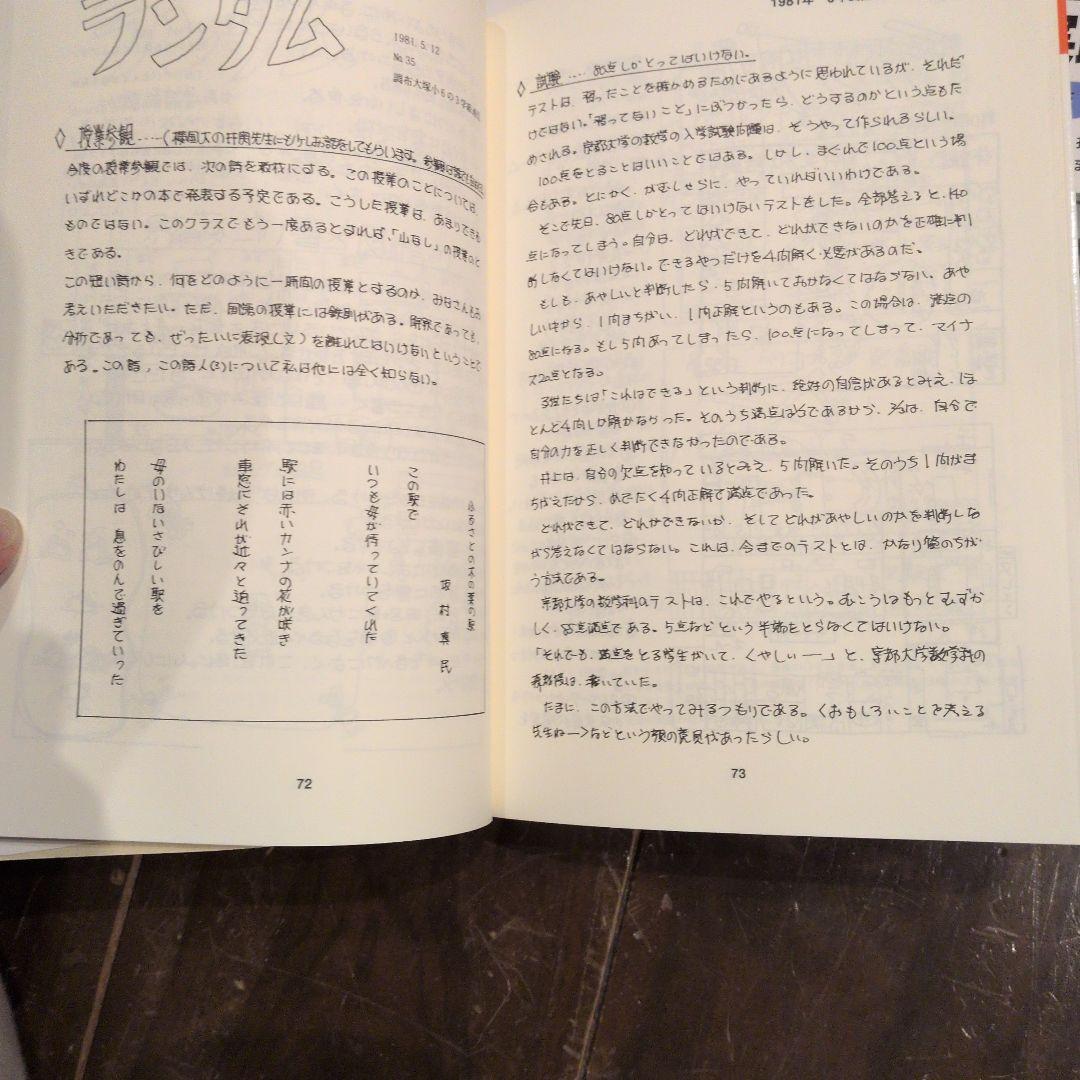 ランダム
1981.5.12
No.35
調布大塚小6の3学級
◇ 授業参観……(横国大の井関先生にも少しお話をしてもらいます。
今度の授業参観では、次の詩を教材にする。この授業のことについては、
いずれどこかの本で発表する予定である。こうした授業は、あまりできる
ものではない。このクラスでもう一度あるとすれば、「山なし」の授業のと
きである。
この短い詩から、何をどのように一時間の授業とするのか、みなさんもお
考えいただきたい。ただ、国語の授業には鉄則がある。解釈であっても、
分析であっても、ぜったいに表現(文)を離れてはいけないということで
ある。この詩、この詩人について私は他には全く知らない。
ふるさとの木の葉の駅
坂村真民
この駅で
いつも母が待っていてくれた
駅には赤いカンナの花が咲き
車窓にそれが近々と迫ってきた
母のいないさびしい駅を
わたしは 息をのんで過ぎていった
72
1981年
◇ 試験…. 80点しかとってはいけない。
テストは、習ったことを確かめるためにあるように思われているが、それだ
けではない。「習ってないこと」にぶつかったら、どうするのかという点もた
めされる。京都大学の数学の入学試験問題は、そうやって作られるらしい。
100点をとることはいいことではある。しかし、まぐれで100点という場
合もある。とにかく、がむしゃらに、やっていればいいわけである。
そこで先日、80点しかとってはいけないテストをした。全部答えると、140
点になってしまう。自分は、どれができて、どれができないのかを正確に判
断しなくてはいけない。できるやつだけを4問解く必要があるのだ。
もしも、あやしいと判断したら、5問解いておかなくてはならない。あや
しい中から、1問まちがい、1問正解というのもある。この場合は、満点の
80点になる。もし5問あってしまったら、100点になってしまって、マイナ
ス20点となる。
子供たちは「これはできる」という判断に、絶対の自信があるとみえ、ほ
とんど4問しか解かなかった。そのうち満点は1/3であるから、2/3は、自分で
自分の力を正しく判断できなかったのである。
井上は、自分の欠点を知っているとみえ、5問解いた。そのうち1問がま
ちがえたから、めでたく4問正解で満点であった。
どれができて、どれができないか、そしてどれがあやしいのかを判断しな
がら答えなくてはならない。これは、今までのテストとは、かなり質のちが
う方法である。
京都大学の数学科のテストは、これでやるという。むこうはもっとむずか
しく、85点満点である。5点などという半端をとらなくてはいけない。
「それでも、満点をとる学生がいて、くやしいー」と、京都大学数学科の
教授は、書いていた。
たまに、この方法でやってみるつもりである。〈おもしろいことを考える
先生ねー〉などという親の意見があったらしい。
73